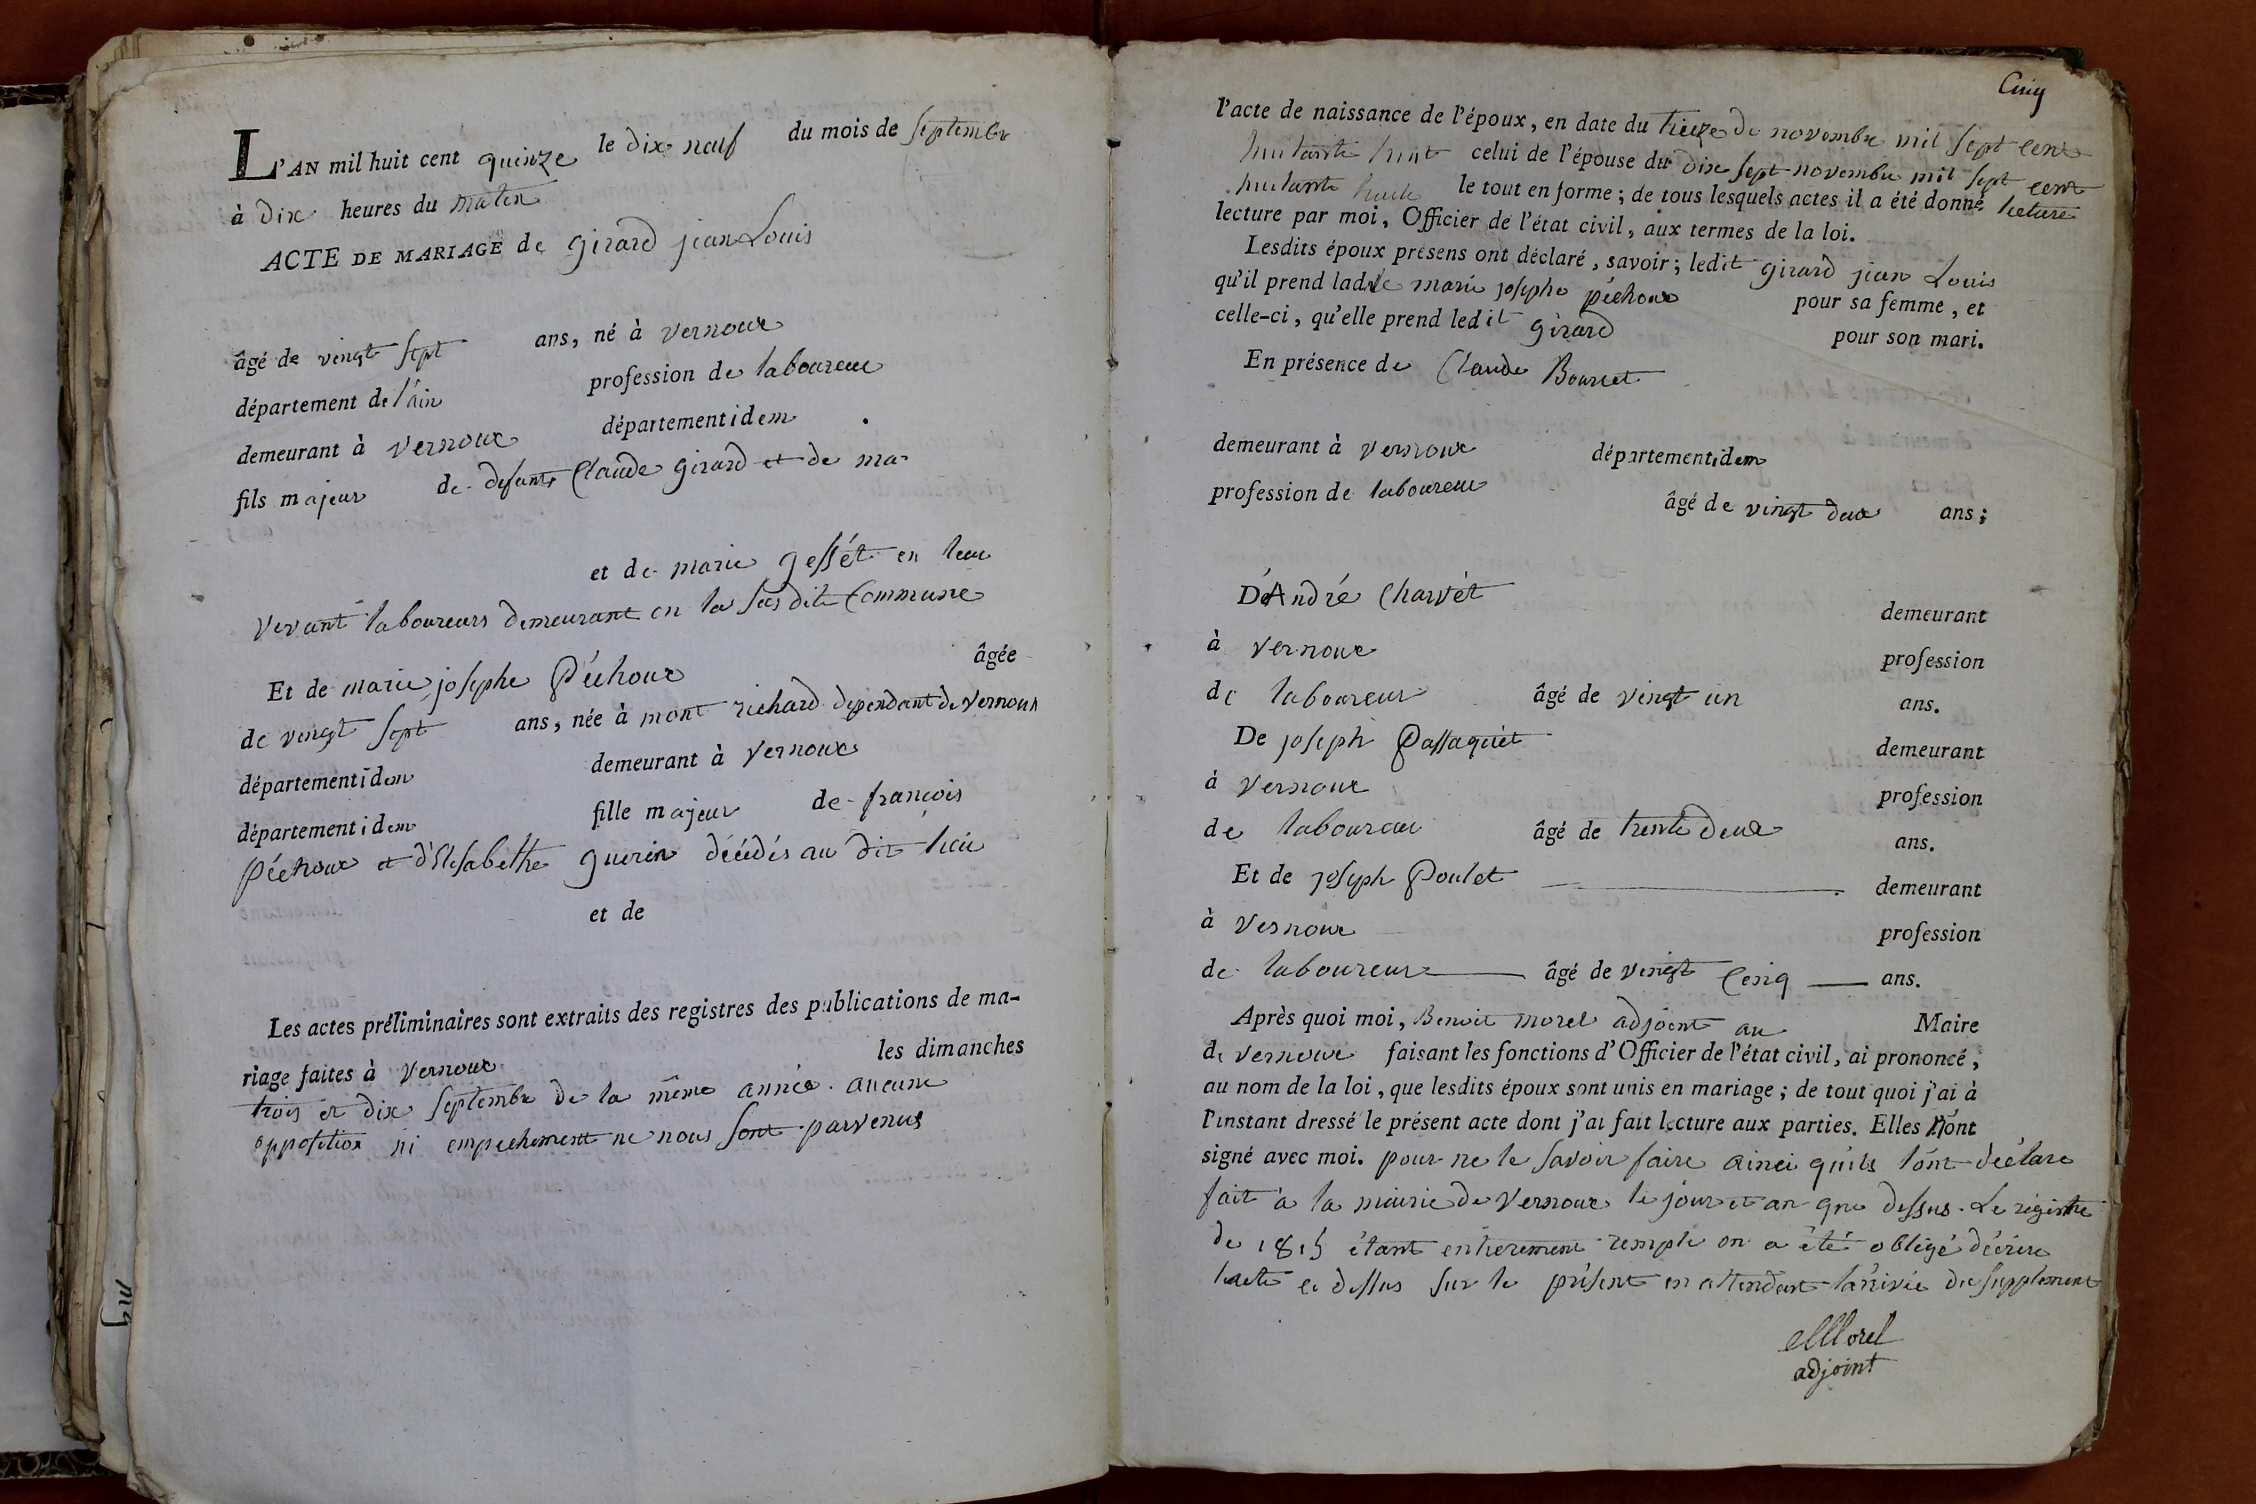 L'AN mil huit cent quinze le dix neuf du mois de septembre
à dix heures du matin
ACTE DE MARIAGE de girard jean Louis
âgé de vingt sept ans, né à vernoux
département de l'ain profession de laboureur
demeurant à vernoux département idem
fils majeur de defunts Claude girard et de ma-
et de marie gessét en leur
vivant laboureurs demeurant en la susdite Commune
Et de marie josephe Péchoux âgée
de vingt sept ans, née à mont richard dependant de vernoux
département idem demeurant à vernoux
département idem fille majeur de françois
Péchoux et d'Elisabethe guerin décédés au dit lieu
et de
Les actes préliminaires sont extraits des registres des publications de ma-
riage faites à vernoux les dimanches
trois et dix septembre de la même année. aucune
opposition ni empechement ne nous sont parvenus
Cinq
l'acte de naissance de l'époux, en date du treize de novembre mil sept cent
huitante celui de l'épouse du dix sept novembre mil sept cent
huitante huit le tout en forme; de tous lesquels actes il a été donné lecture
lecture par moi, Officier de l'état civil, aux termes de la loi.
Lesdits époux présens ont déclaré, savoir; ledit girard jean Louis
qu'il prend ladite marie josephe péchoux pour sa femme, et
celle-ci, qu'elle prend ledit girard pour son mari.
En présence de Claude Bourcet
demeurant à vernoux département idem
profession de laboureur âgé de vingt deux ans;
D'André Charvét demeurant
à vernoux profession
de laboureur âgé de vingt un ans.
De joseph Passaquet demeurant
à vernoux profession
de laboureur âgé de trente deux ans.
Et de joseph Poulet demeurant
à vernoux profession
de laboureur âgé de vingt Cinq ans.
Après quoi moi, Benoit morel adjoint au Maire
de vernoux faisant les fonctions d'Officier de l'état civil, ai prononcé,
au nom de la loi, que lesdits époux sont unis en mariage; de tout quoi j'ai à
l'instant dressé le présent acte dont j'ai fait lecture aux parties. Elles n'ont
signé avec moi. pour ne le savoir faire ainci qu'ils l'ont déclaré
fait à la mairie de vernoux le jour et an que dessus. Le régistre
de 1815 étant entierement rempli on a été obligé décrire
l'acte ci dessus sur le présent en attendant l'arrivée du supplement
Morel
adjoint